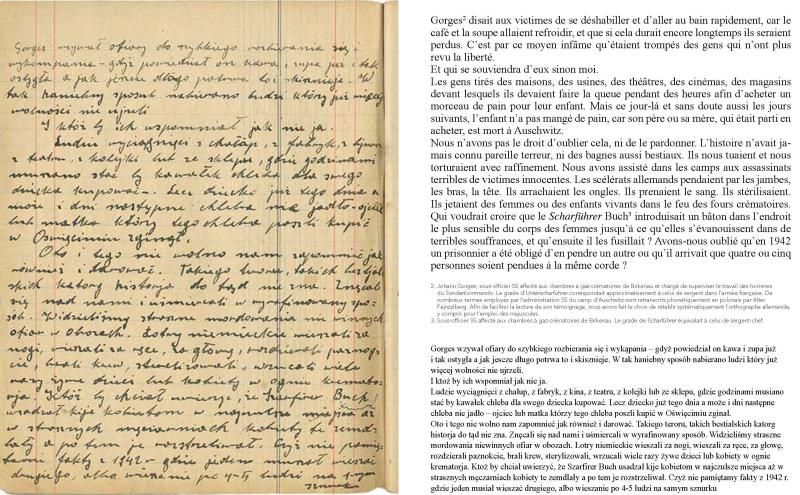 Gorges wzywał ofiary do szybkiego rozbierania się i
wykąpania – gdyż powiedział on kawa i zupa już i tak
ostygła a jak jeszcze długo potrwa to i skisznieje. W
tak haniebny sposób nabierano ludzi który już więcej
wolności nie ujrzeli
I któż by ich wspomniał jak nie ja.
Ludzie wyciągnięci z chałup, z fabryk, z kina,
z teatru, z kolejki lub ze sklepu, gdzie godzinami
musiano stać by kawałek chleba dla swego
dziecka kupować. Lecz dziecko już tego dnia a
może i dni następne chleba nie jadło – ojciec
lub matka który tego chleba poszli kupić
w Oświęcimiu zginął.
Oto i tego nie wolno nam zapomnieć jak
również i darować. Takiego teroru, takich bestjal-
skich katorg historja do tąd nie zna. Znęcali
się nad nami i uśmiercali w wyrafinowany spo-
sób. Widzieliśmy straszne mordowania niewinnych
ofiar w obozach. Łotry niemieckie wieszali za
nogi, wieszali za ręce, za głowę, rozdzierali paznog-
cie, brali krew, sterylizowali, wrzucali wiele
razy żywe dzieci lub kobiety w ognie kremato-
rja. Ktoż by chciał uwierzyć, że Szarfirer Buch
usadzał kije kobietom w najczulsze miejsca aż
w strasznych męczarniach kobiety te zemd-
lały a po tem je rozstrzeliwał. Czyż nie pamię-
tamy fakty z 1942 – gdzie jeden musiał wieszać
drugiego, albo wieszanie po 4-5 ludzi na samym
sznurku
Gorges² disait aux victimes de se déshabiller et d'aller au bain rapidement, car le
café et la soupe allaient refroidir, et que si cela durait encore longtemps ils seraient
perdus. C'est par ce moyen infâme qu'étaient trompés des gens qui n'ont plus
revu la liberté.
Et qui se souviendra d'eux sinon moi.
Les gens tirés des maisons, des usines, des théâtres, des cinémas, des magasins
devant lesquels ils devaient faire la queue pendant des heures afin d'acheter un
morceau de pain pour leur enfant. Mais ce jour-là et sans doute aussi les jours
suivants, l'enfant n'a pas mangé de pain, car son père ou sa mère, qui était parti en
acheter, est mort à Auschwitz.
Nous n'avons pas le droit d'oublier cela, ni de le pardonner. L'histoire n'avait ja-
mais connu pareille terreur, ni des bagnes aussi bestiaux. Ils nous tuaient et nous
torturaient avec raffinement. Nous avons assisté dans les camps aux assassinats
terribles de victimes innocentes. Les scélérats allemands pendaient par les jambes,
les bras, la tête. Ils arrachaient les ongles. Ils prenaient le sang. Ils stérilisaient.
Ils jetaient des femmes ou des enfants vivants dans le feu des fours crématoires.
Qui voudrait croire que le Scharführer Buch³ introduisait un bâton dans l'endroit
le plus sensible du corps des femmes jusqu'à ce qu'elles s'évanouissent dans de
terribles souffrances, et qu'ensuite il les fusillait ? Avons-nous oublié qu'en 1942
un prisonnier a été obligé d'en pendre un autre ou qu'il arrivait que quatre ou cinq
personnes soient pendues à la même corde ?
2. Johann Gorges, sous-officier SS affecté aux chambres à gaz-crématoires de Birkenau et chargé de superviser le travail des hommes
du Sonderkommando. Le grade d'Unterscharführer correspondait approximativement à celui de sergent dans l'armée française. De
nombreux termes employés par l'administration SS du camp d'Auschwitz sont retranscrits phonétiquement en polonais par Alter
Fajnzylberg. Afin de faciliter la lecture de son témoignage, nous avons fait le choix de rétablir systématiquement l'orthographe allemande,
y compris pour l'emploi des majuscules.
3. Sous-officier SS affecté aux chambres à gaz-crématoires de Birkenau. Le grade de Scharführer équivalait à celui de sergent-chef.
Gorges wzywał ofiary do szybkiego rozbierania się i wykąpania – gdyż powiedział on kawa i zupa już
i tak ostygła a jak jescze długo potrwa to i skisznieje. W tak haniebny sposób nabierano ludzi który już
więcej wolności nie ujrzeli.
I któż by ich wspomniał jak nie ja.
Ludzie wyciągnięci z chałup, z fabryk, z kina, z teatru, z kolejki lub ze sklepu, gdzie godzinami musiano
stać by kawałek chleba dla swego dziecka kupować. Lecz dziecko już tego dnia a może i dni następne
chleba nie jadło – ojciec lub matka którzy tego chleba poszli kupić w Oświęcimiu zginął.
Oto i tego nie wolno nam zapomnieć jak również i darować. Takiego teroru, takich bestialskich katorg
historja do tąd nie zna. Znęcali się nad nami i uśmiercali w wyrafinowany sposób. Widzieliśmy straszne
mordowania niewinnych ofiar w obozach. Lotry niemieckie wieszali za nogi, wieszali za ręce, za głowę,
rozdzierali paznokcie, brali krew, sterylizowali, wrzucali wiele razy żywe dzieci lub kobiety w ognie
krematorja. Ktoż by chcail uwierzyć, że Szarfirer Buch usadzał kije kobietom w najczulsze miejsca aż w
strasznych męczarniach kobiety te zemdlały a po tem je rozstrzeliwał. Czyż nie pamiętamy fakty z 1942 r.
gdzie jeden musiał wieszać drugiego, albo wieszanie po 4-5 ludzi na samym sznurku